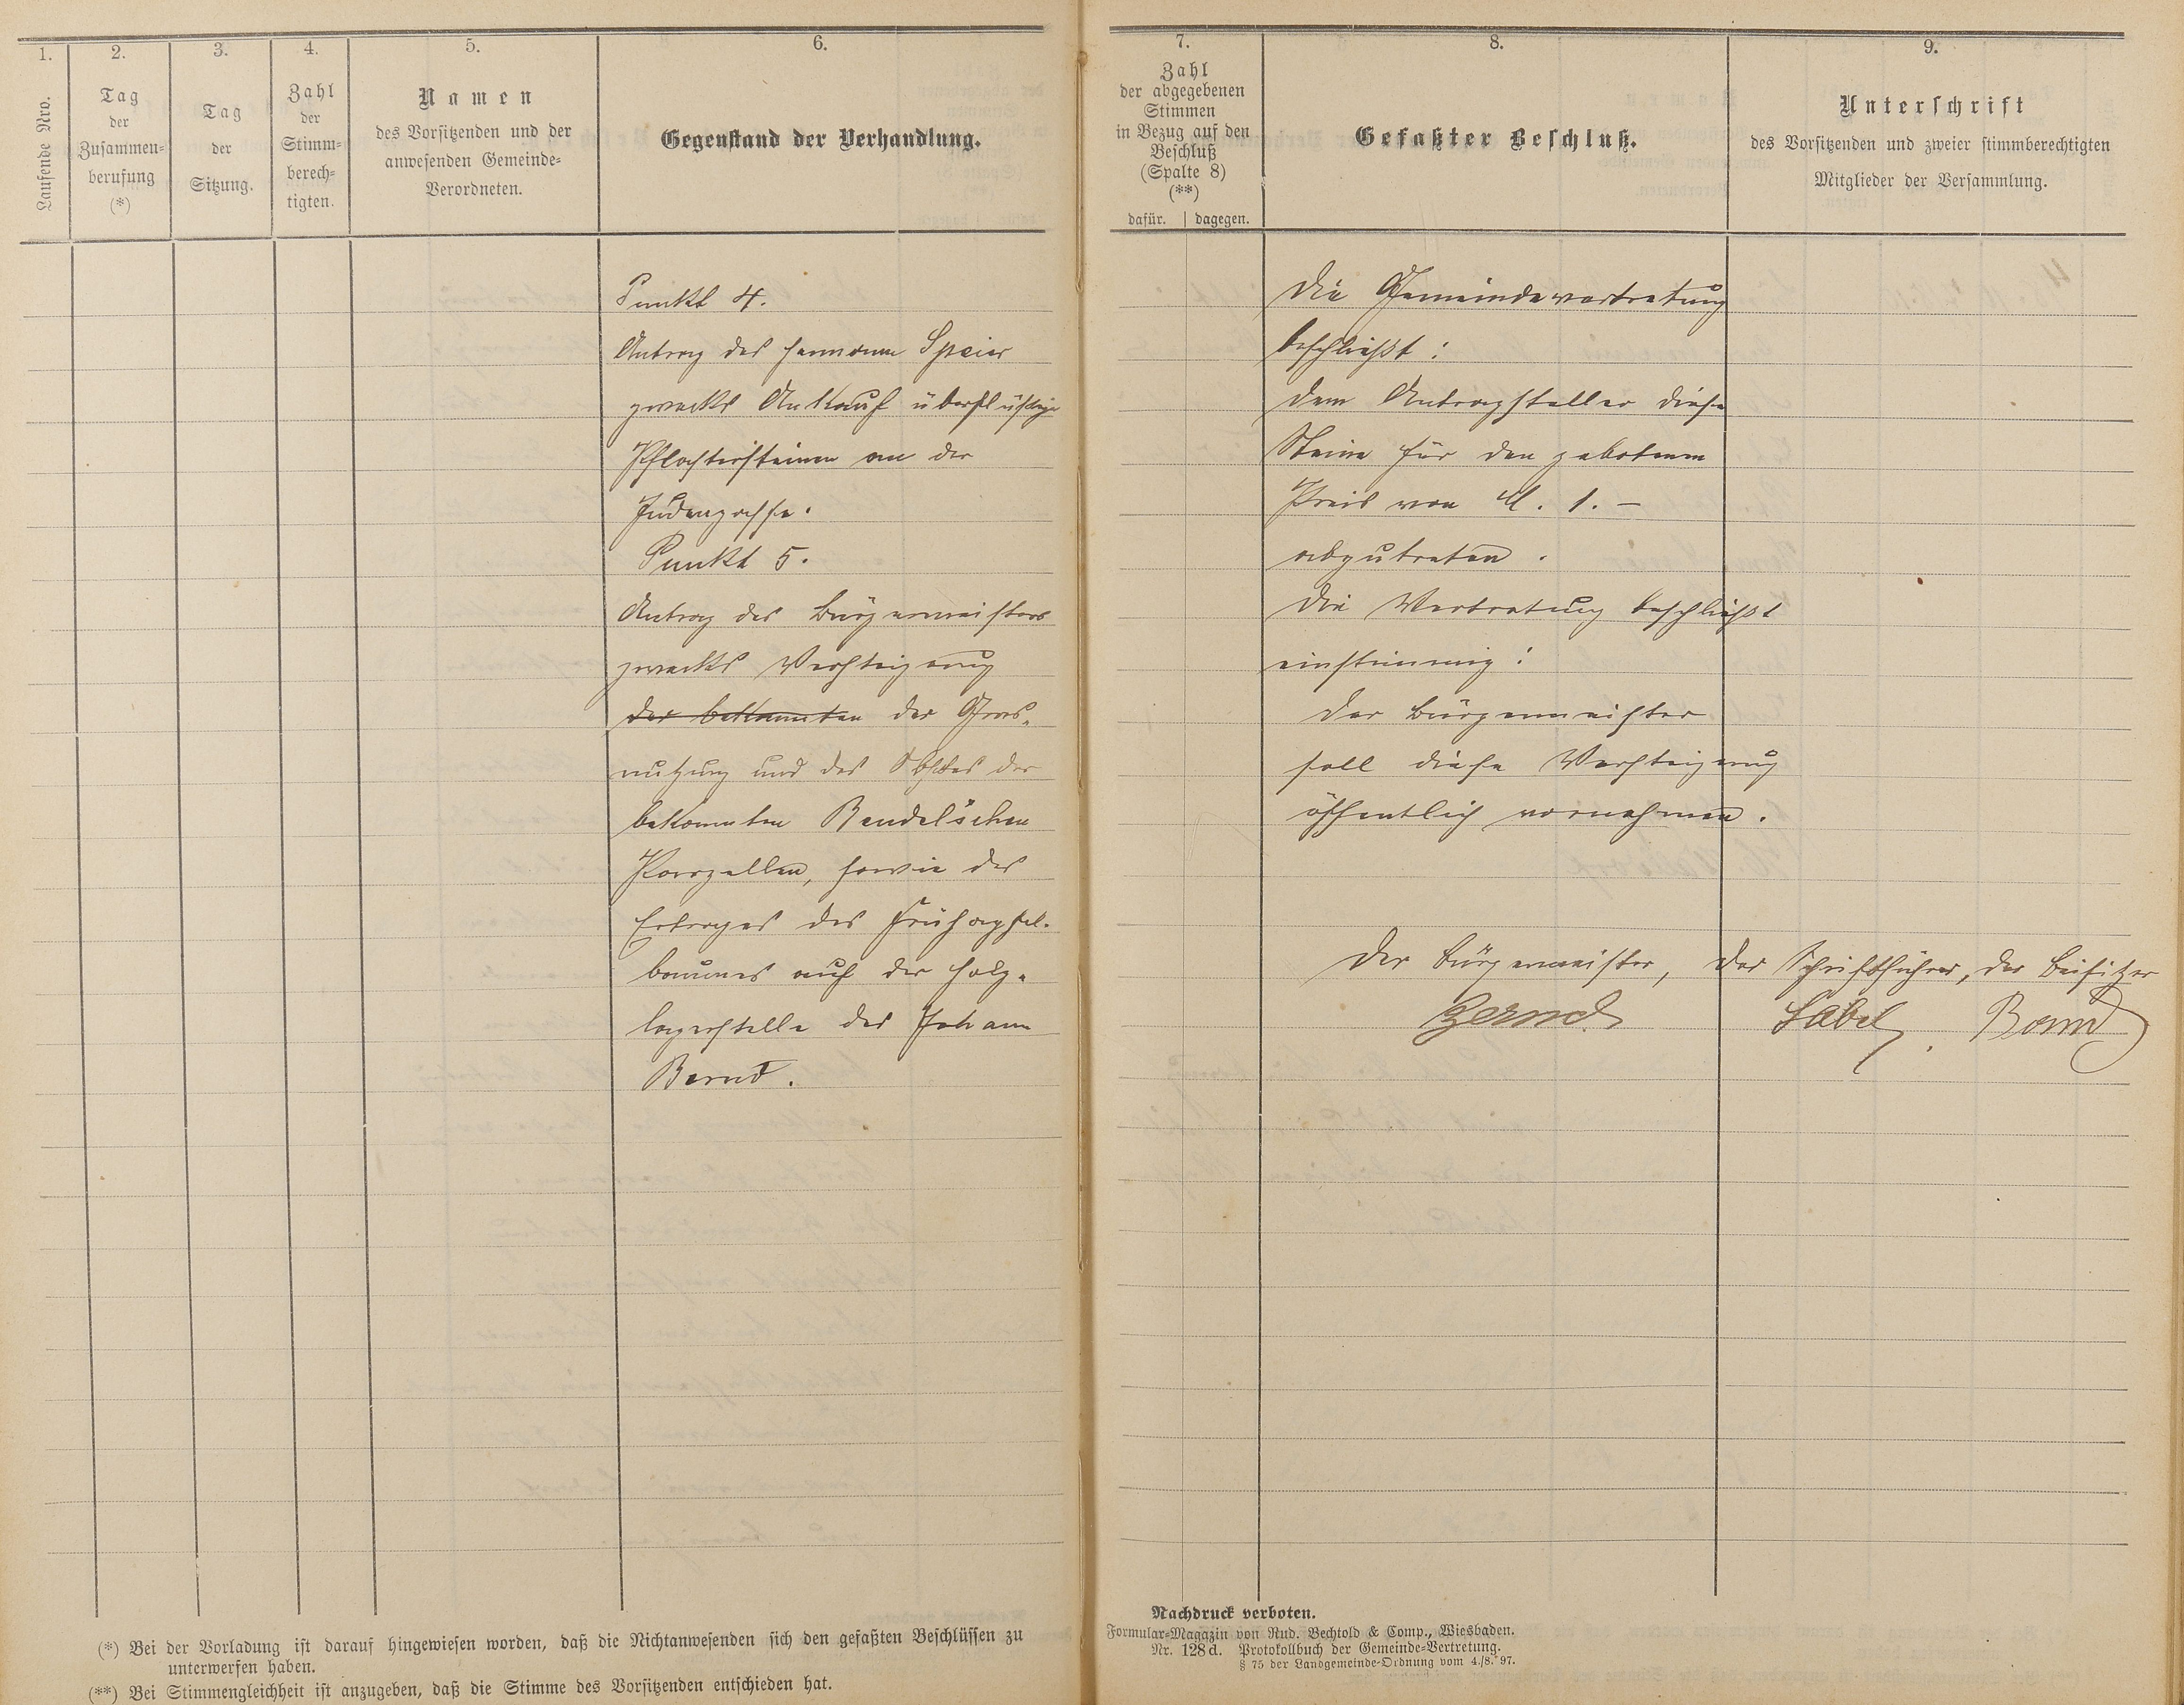 1.
Laufende Nro.
2.
Tag
der
Zusammen-
berufung
(*)
3.
Tag
der
Sitzung.
4.
Zahl
der
Stimm-
berech-
tigten.
5.
Namen
des Vorsitzenden und der
anwesenden Gemeinde-
Verordneten.
6.
Gegenstand der Verhandlung.
Punkt 4.
Antrag des Hermann Speier
zwecks Ankauf überflüssige
Pflastersteinen an der
Judengasse.
Punkt 5.
Antrag des Bürgermeisters
zwecks Versteigerung
der bekannten der Gras-
nutzung und des Obstes der
bekannten Bendel'schen
Parzellen, sowie des
Ertrages des Frühapfel-
baumes auf der Holz-
lagerstelle des Johann
Bernd.
(*) Bei der Vorladung ist darauf hingewiesen worden, daß die Nichtanwesenden sich den gefaßten Beschlüssen zu
unterwerfen haben.
(**) Bei Stimmengleichheit ist anzugeben, daß die Stimme des Vorsitzenden entschieden hat.
7.
Zahl
der abgegebenen
Stimmen
in Bezug auf den
Beschluß
(Spalte 8)
(**)
dafür. | dagegen.
8.
Gefaßter Beschluß.
9.
Unterschrift
des Vorsitzenden und zweier stimmberechtigten
Mitglieder der Versammlung.
Die Gemeindevertretung
beschließt:
dem Antragsteller diese
Steine für den gebotenen
Preis von M. 1.-
abzutreten.
Die Vertretung beschließt
einstimmig:
Der Bürgermeister
soll diese Versteigerung
öffentlich vornehmen.
Der Bürgermeister, Der Schriftführer, der Beisitzer
Bernd Sabel. Bernd
Nachdruck verboten.
Formular-Magazin von Rud. Bechtold & Comp., Wiesbaden.
Nr. 128d. Protokollbuch der Gemeinde-Vertretung.
§ 75 der Landgemeinde-Ordnung vom 4./8. 97.